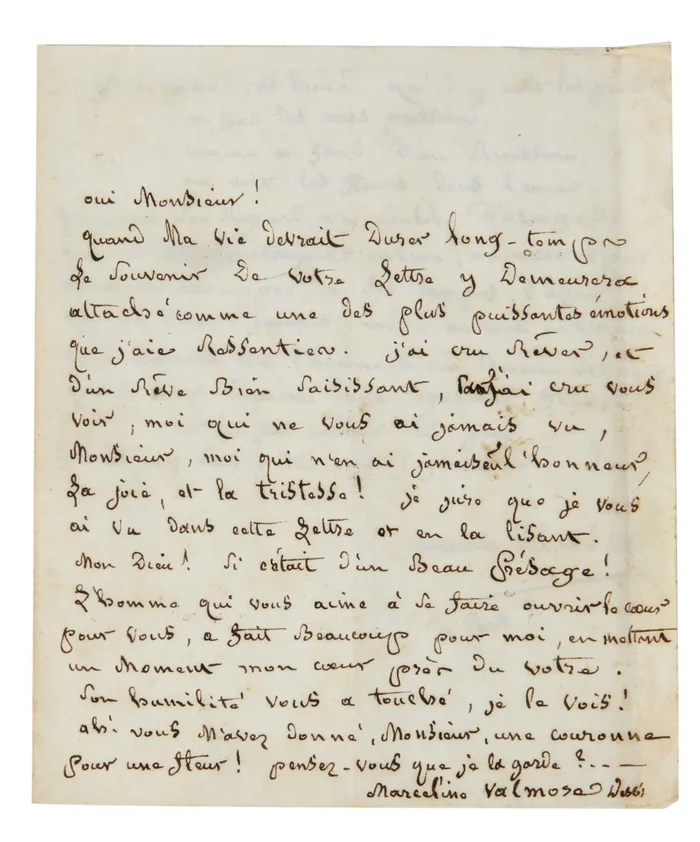 oui Monsieur !
quand Ma vie devrait Durer long-temps
Le Souvenir De votre Lettre y Demeurera
attaché comme une des plus puissantes émotions
que j'aie Ressenties. j'ai cru Rêver, et
d'un Rêve Bien Saisissant, j'ai cru vous
voir, moi qui ne vous ai jamais vu,
Monsieur, moi qui n'en ai jamais eu l'honneur,
La joie, et la tristesse ! je jure que je vous
ai vu dans cette Lettre et en la lisant.
Mon Dieu ! Si c'était d'un Beau Présage !
L'homme qui vous aime à se faire ouvrir le cœur
pour vous, a fait Beaucoup pour moi, en mettant
un Moment mon cœur près du votre.
Son humilité vous a touché, je le vois !
ah ! vous M'avez donné, Monsieur, une couronne
pour une fleur ! pensez-vous que je la garde ?.. —
Marceline Valmore